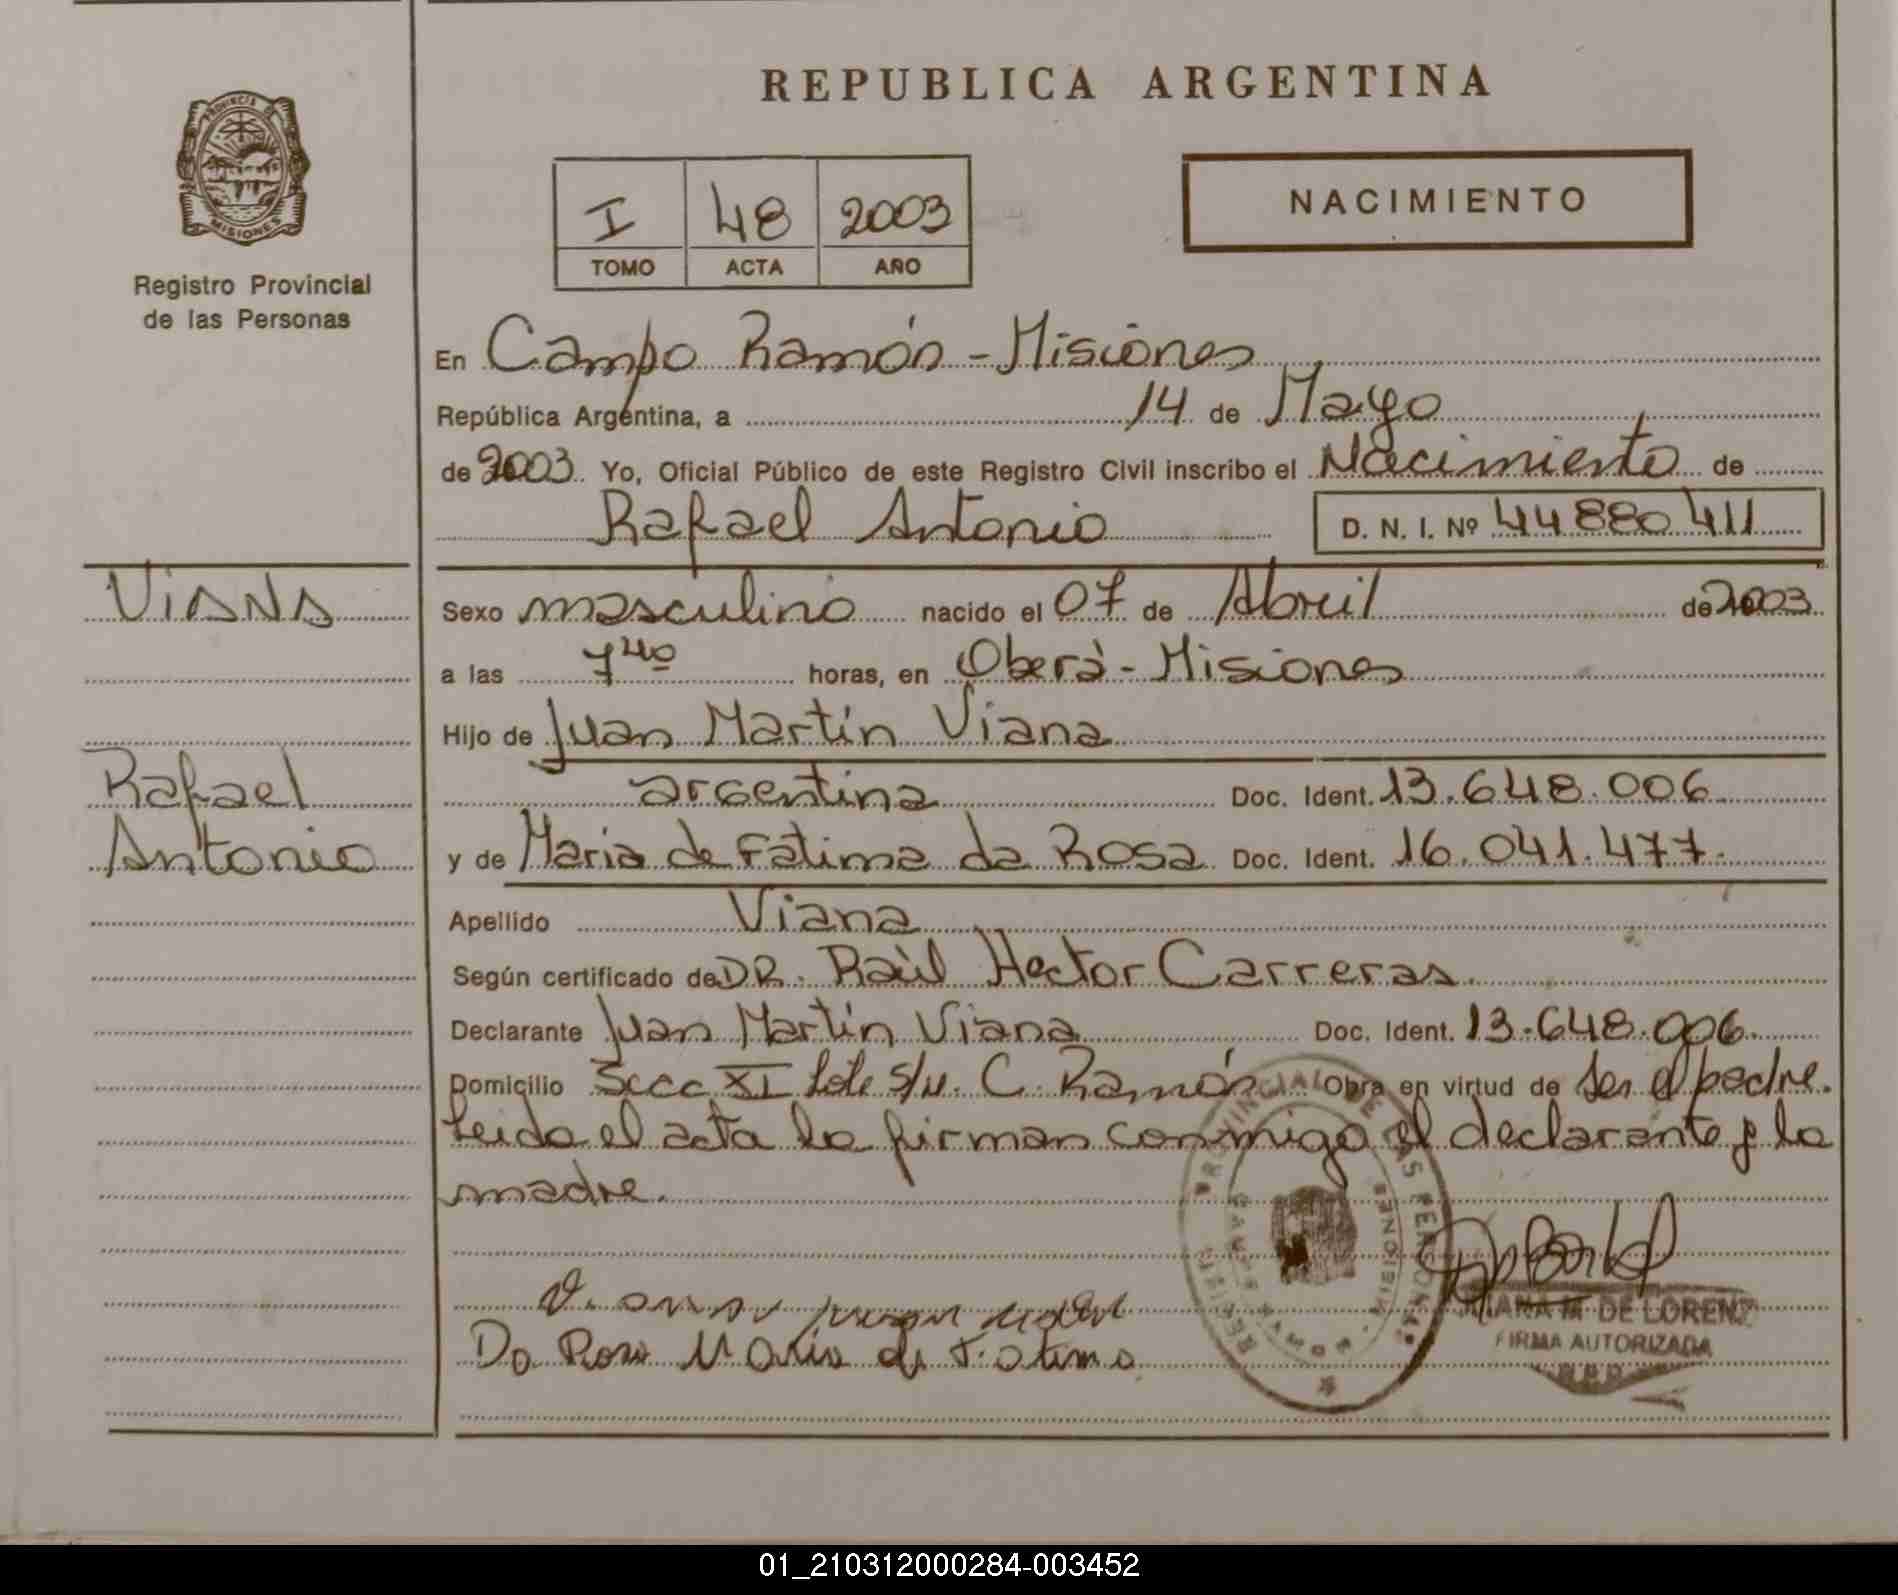 REPUBLICA ARGENTINA
PROVINCIA DE
MISIONES
Registro Provincial
de las Personas
I 48 2003
TOMO ACTA AÑO
NACIMIENTO
En Campo Ramón - Misiones
República Argentina, a 14 de Mayo
de 2003 Yo, Oficial Público de este Registro Civil inscribo el Nacimiento de
Rafael Antonio D. N. I. Nº 44 880 411
Viana
Sexo masculino nacido el 07 de Abril de 2003
a las 7 40 horas, en Oberá - Misiones
Hijo de Juan Martín Viana
Rafael
argentina Doc. Ident. 13.648.006
Antonio
y de Maria de Fatima da Rosa Doc. Ident. 16.041.477.
Apellido Viana
Según certificado de DR. Raúl Hector Carreras.
Declarante Juan Martín Viana Doc. Ident. 13.648.006
Domicilio Secc XI Lote s/n. C. Ramón Obra en virtud de ser el padre.
Leida el acta la firman conmigo el declarante y la
madre.
REGISTRO PROVINCIAL DE LAS PERSONAS
MISIONES
Da Rosa Maria de Fatima
DE LORENZ
FIRMA AUTORIZADA
01_210312000284-003452